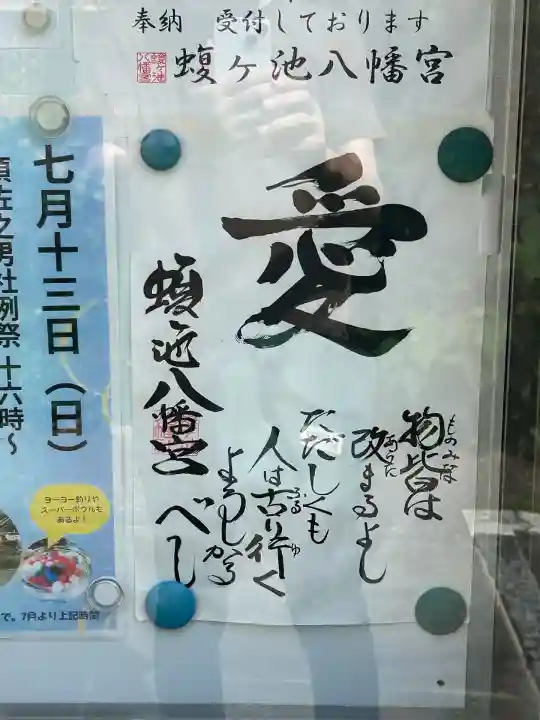 奉納 受付しております
蝮ヶ池八幡宮
愛
物皆は
ものみな
改まるよし
あらた
ただしくも
人は古り行く
ふる ゆ
よろしかる
べし
蝮池八幡宮
七月十三日（日）
須佐之男社例祭 十六時～
ヨーヨー釣りや
スーパーボウルも
あるよ！
で。7月より上記時間